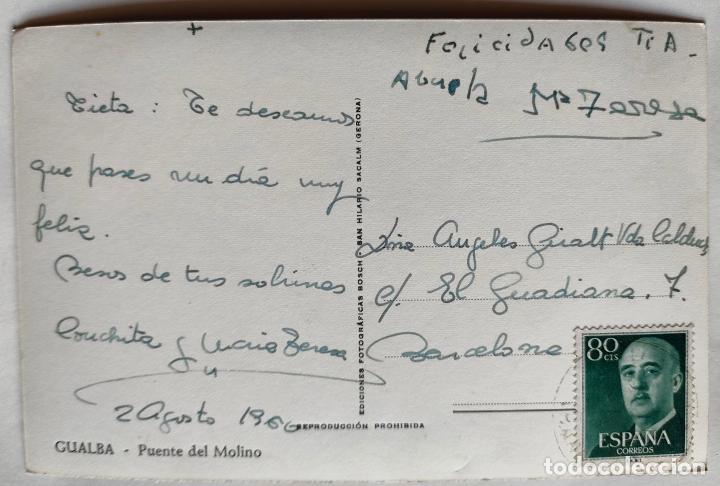 +
FeliciDAbes TiA -
Abuela
Mª Teresa
Tieta : Te deseamos
que pases un día muy
feliz.
Besos de tus sobrinas
Conchita y María Teresa
2 Agosto 1960
GUALBA - Puente del Molino
EDICIONES FOTOGRÁFICAS BOSCH - SAN HILARIO SACALM (GERONA)
REPRODUCCIÓN PROHIBIDA
Angeles Giralt Vda
c/ El Guadiana. 7.
Barcelona
80
CTS
ESPAÑA
CORREOS
todocoleccion.net